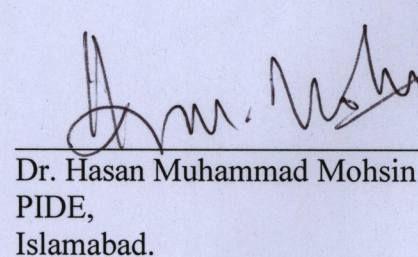 Dr. Hasan Muhammad Mohsin
PIDE,
Islamabad.